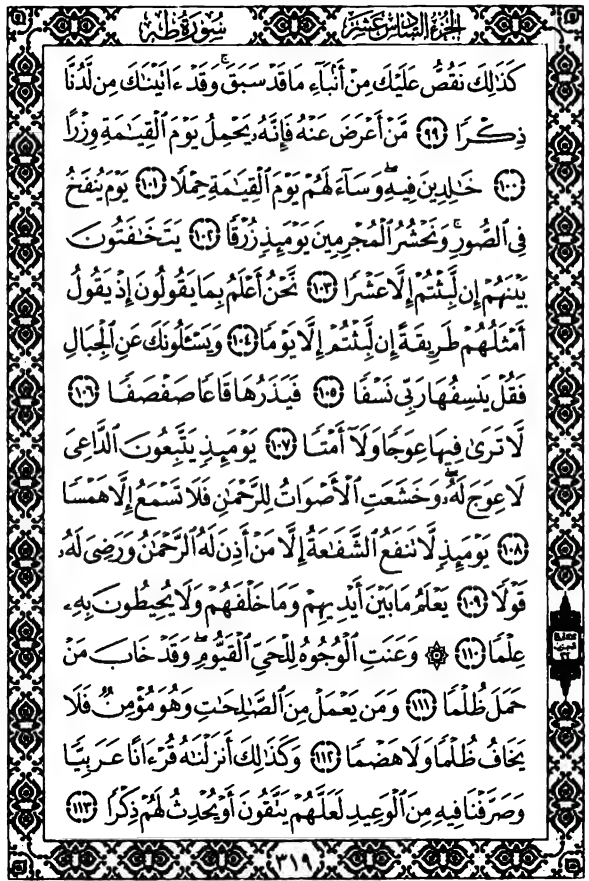 الجزء السادس عشر
سورة طه
كَذَٰلِكَ نَقُصُّ عَلَيْكَ مِنْ أَنۢبَآءِ مَا قَدْ سَبَقَ ۚ وَقَدْ ءَاتَيْنَٰكَ مِن لَّدُنَّا
ذِكْرًا ﴿٩٩﴾ مَّنْ أَعْرَضَ عَنْهُ فَإِنَّهُۥ يَحْمِلُ يَوْمَ ٱلْقِيَٰمَةِ وِزْرًا
﴿١٠٠﴾ خَٰلِدِينَ فِيهِ ۖ وَسَآءَ لَهُمْ يَوْمَ ٱلْقِيَٰمَةِ حِمْلًا ﴿١٠١﴾ يَوْمَ يُنفَخُ
فِى ٱلصُّورِ ۚ وَنَحْشُرُ ٱلْمُجْرِمِينَ يَوْمَئِذٍ زُرْقًا ﴿١٠٢﴾ يَتَخَٰفَتُونَ
بَيْنَهُمْ إِن لَّبِثْتُمْ إِلَّا عَشْرًا ﴿١٠٣﴾ نَّحْنُ أَعْلَمُ بِمَا يَقُولُونَ إِذْ يَقُولُ
أَمْثَلُهُمْ طَرِيقَةً إِن لَّبِثْتُمْ إِلَّا يَوْمًا ﴿١٠٤﴾ وَيَسْـَٔلُونَكَ عَنِ ٱلْجِبَالِ
فَقُلْ يَنسِفُهَا رَبِّى نَسْفًا ﴿١٠٥﴾ فَيَذَرُهَا قَاعًا صَفْصَفًا ﴿١٠٦﴾
لَّا تَرَىٰ فِيهَا عِوَجًا وَلَآ أَمْتًا ﴿١٠٧﴾ يَوْمَئِذٍ يَتَّبِعُونَ ٱلدَّاعِىَ
لَا عِوَجَ لَهُۥ ۖ وَخَشَعَتِ ٱلْأَصْوَاتُ لِلرَّحْمَٰنِ فَلَا تَسْمَعُ إِلَّا هَمْسًا
﴿١٠٨﴾ يَوْمَئِذٍ لَّا تَنفَعُ ٱلشَّفَٰعَةُ إِلَّا مَنْ أَذِنَ لَهُ ٱلرَّحْمَٰنُ وَرَضِىَ لَهُۥ
قَوْلًا ﴿١٠٩﴾ يَعْلَمُ مَا بَيْنَ أَيْدِيهِمْ وَمَا خَلْفَهُمْ وَلَا يُحِيطُونَ بِهِۦ
عِلْمًا ﴿١١٠﴾ ۞ وَعَنَتِ ٱلْوُجُوهُ لِلْحَىِّ ٱلْقَيُّومِ ۖ وَقَدْ خَابَ مَنْ
حَمَلَ ظُلْمًا ﴿١١١﴾ وَمَن يَعْمَلْ مِنَ ٱلصَّٰلِحَٰتِ وَهُوَ مُؤْمِنٌ فَلَا
يَخَافُ ظُلْمًا وَلَا هَضْمًا ﴿١١٢﴾ وَكَذَٰلِكَ أَنزَلْنَٰهُ قُرْءَانًا عَرَبِيًّا
وَصَرَّفْنَا فِيهِ مِنَ ٱلْوَعِيدِ لَعَلَّهُمْ يَتَّقُونَ أَوْ يُحْدِثُ لَهُمْ ذِكْرًا ﴿١١٣﴾
٣١٩